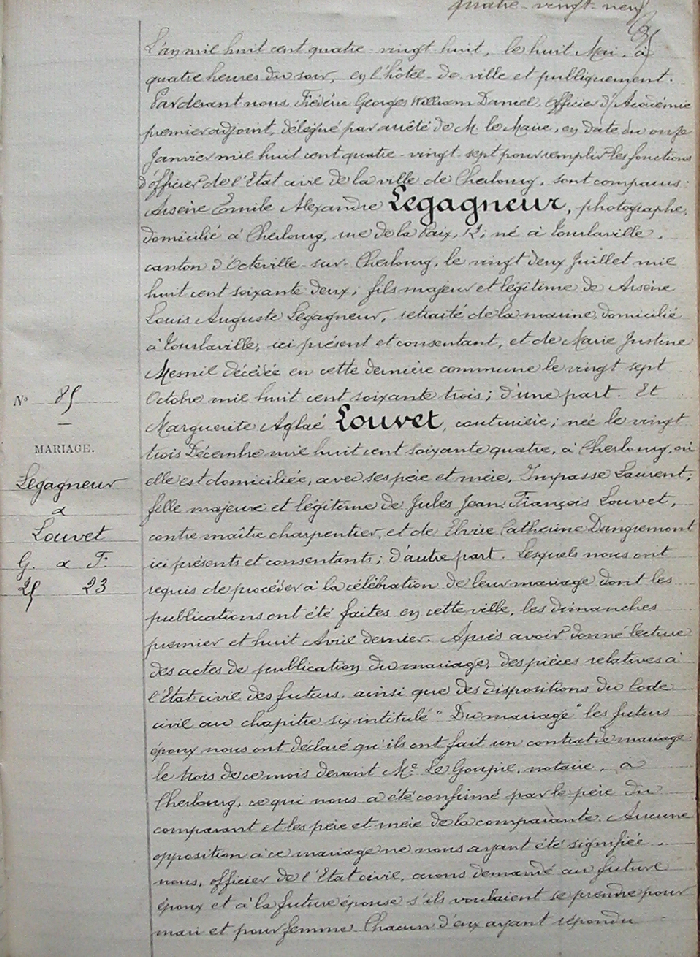 quatre-vingt-neuf
L'an mil huit cent quatre-vingt huit, le huit Mai, à
quatre heures du soir, en l'hôtel-de-ville et publiquement.
Pardevant nous Frédéric Georges William Daniel, officier d'Académie
premier adjoint, délégué par arrêté de M. le Maire, en date du onze
Janvier mil huit cent quatre-vingt-sept pour remplir les fonctions
d'officier de l'Etat civil de la ville de Cherbourg, sont comparus:
Arsène Emile Alexandre Legagneur, photographe,
domicilié à Cherbourg, rue de la Paix, 12, né à Tourlaville,
canton d'Octeville-sur-Cherbourg, le vingt deux Juillet mil
huit cent soixante deux; fils majeur et légitime de Arsène
Louis Auguste Legagneur, retraité de la marine, domicilié
à Tourlaville, ici présent et consentant, et de Marie Justine
Mesnil décédée en cette dernière commune le vingt sept
Octobre mil huit cent soixante trois; d'une part. Et
Marguerite Aglaé Louvet, couturière; née le vingt
trois Décembre mil huit cent soixante quatre, à Cherbourg, où
elle est domiciliée, avec ses père et mère, Impasse Laurent;
fille majeure et légitime de Jules Jean François Louvet,
contre maître charpentier, et de Elvire Catherine Dangremont
ici présents et consentants; d'autre part. Lesquels nous ont
requis de procéder à la célébration de leur mariage dont les
publications ont été faites en cette ville, les dimanches
premier et huit Avril dernier. Après avoir donné lecture
des actes de publication du mariage, des pièces relatives à
l'Etat civil des futurs, ainsi que des dispositions du Code
civil au chapitre six intitulé "Du mariage" les futurs
époux nous ont déclaré qu'ils ont fait un contrat de mariage
le trois de ce mois devant Me Le Goupil, notaire, à
Cherbourg, ce qui nous a été confirmé par le père du
comparant et les père et mère de la comparante. Aucune
opposition à ce mariage ne nous ayant été signifiée
nous, officier de l'Etat civil, avons demandé au futur
époux et à la future épouse s'ils voulaient se prendre pour
mari et pour femme. Chacun d'eux ayant répondu
No 85
MARIAGE.
Legagneur
&
Louvet
G. & F.
25 23